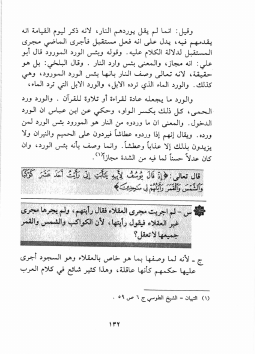 وقيل: انما لم يقل يوردهم النار، لانه ذكر ليوم القيامة انه
يقدمهم فيه، يدل على انه فعل مستقبل فأجرى الماضي مجرى
المستقبل لدلالة الكلام عليه. وقوله وبئس الورد المورود قال أبو
علي: انه مجاز، والمعنى بئس وارد النار. وقال البلخي: بل هو
حقيقة، لانه تعالى وصف النار بانها بئس الورد المورود، وهي
كذلك. والورد الماء الذي ترده الابل، والورود الابل التي ترد الماء،
والورد ما يجعله عادة لقراءة أو تلاوة للقرآن. والورد ورد
الحمى، كل ذلك بكسر الواو، وحكي عن ابن عباس ان الورد
الدخول. والمعنى ان ما وردوه من النار هو المورود بئس الورد لمن
ورده. ويقال إنهم إذا وردوه عطاشاً فيردون على الحميم والنيران ولا
يزيدون بذلك إلا عذاباً وعطشاً. وانما وصف بأنه بئس الورد، وان
كان عدلاً حسناً لما فيه من الشدة مجازاً(١).
قال تعالى: ﴿إِذْ قَالَ يُوسُفُ لِأَبِيهِ يَا أَبَتِ إِنِّي رَأَيْتُ أَحَدَ عَشَرَ كَوْكَبًا
وَالشَّمْسَ وَالْقَمَرَ رَأَيْتُهُمْ لِي سَاجِدِينَ﴾
س - لم أجريت مجرى العقلاء فقال رأيتهم، ولم يجرها مجرى
غير العقلاء فيقول رأيتها، لأن الكواكب والشمس والقمر
جميعها لا تعقل؟
ج - لأنه لما وصفها بما هو خاص بالعقلاء وهو السجود أجرى
عليها حكمهم كأنها عاقلة، وهذا كثير شائع في كلام العرب
(١) التبيان - الشيخ الطوسي ج ٦ ص ٥٩.
١٣٢